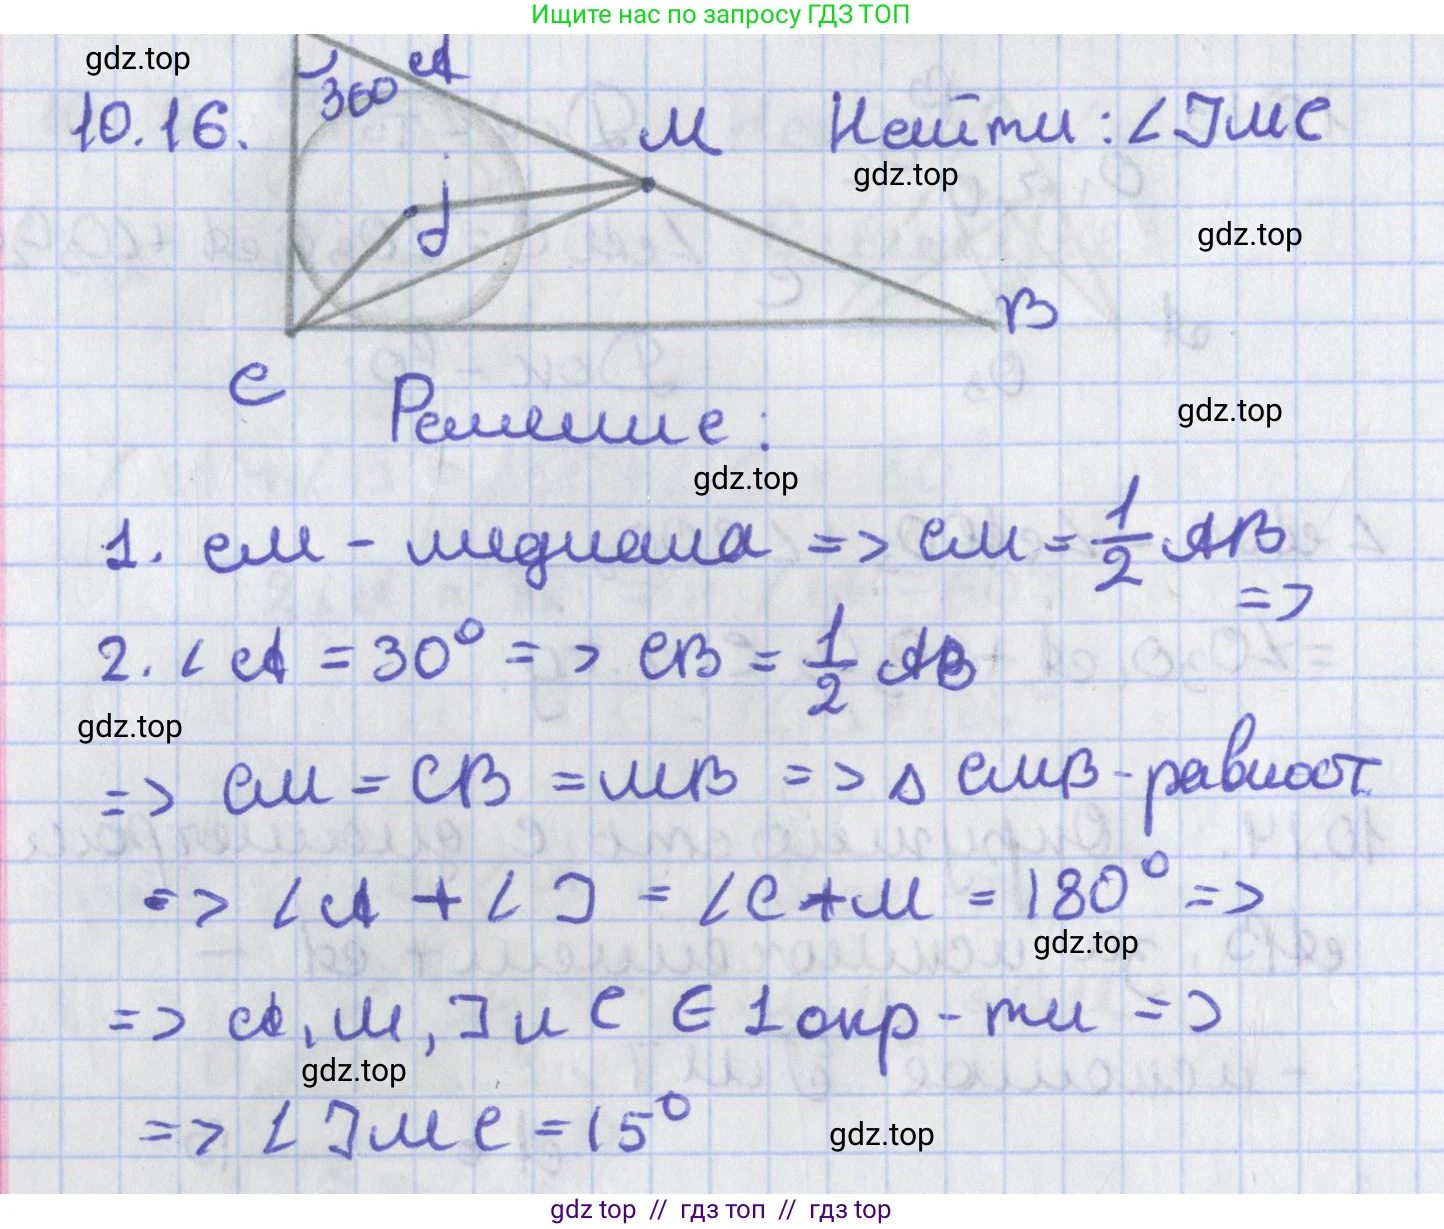 Ищите нас по запросу ГДЗ ТОП
gdz.top
A
30°
10.16.
M
Найти: ∠JMC
gdz.top
J
gdz.top
B
C
Решение:
gdz.top
gdz.top
1. CM - медиана => CM = 1/2 AB =>
2. ∠A = 30° => CB = 1/2 AB
gdz.top
=> CM = CB = MB => Δ CMB - равност.
=> ∠A + ∠J = ∠C + M = 180° =>
gdz.top
=> A, M, J и C ∈ 1 окр-ти =>
gdz.top
=> ∠JMC = 15°
gdz.top
gdz top // гдз топ // гдз top